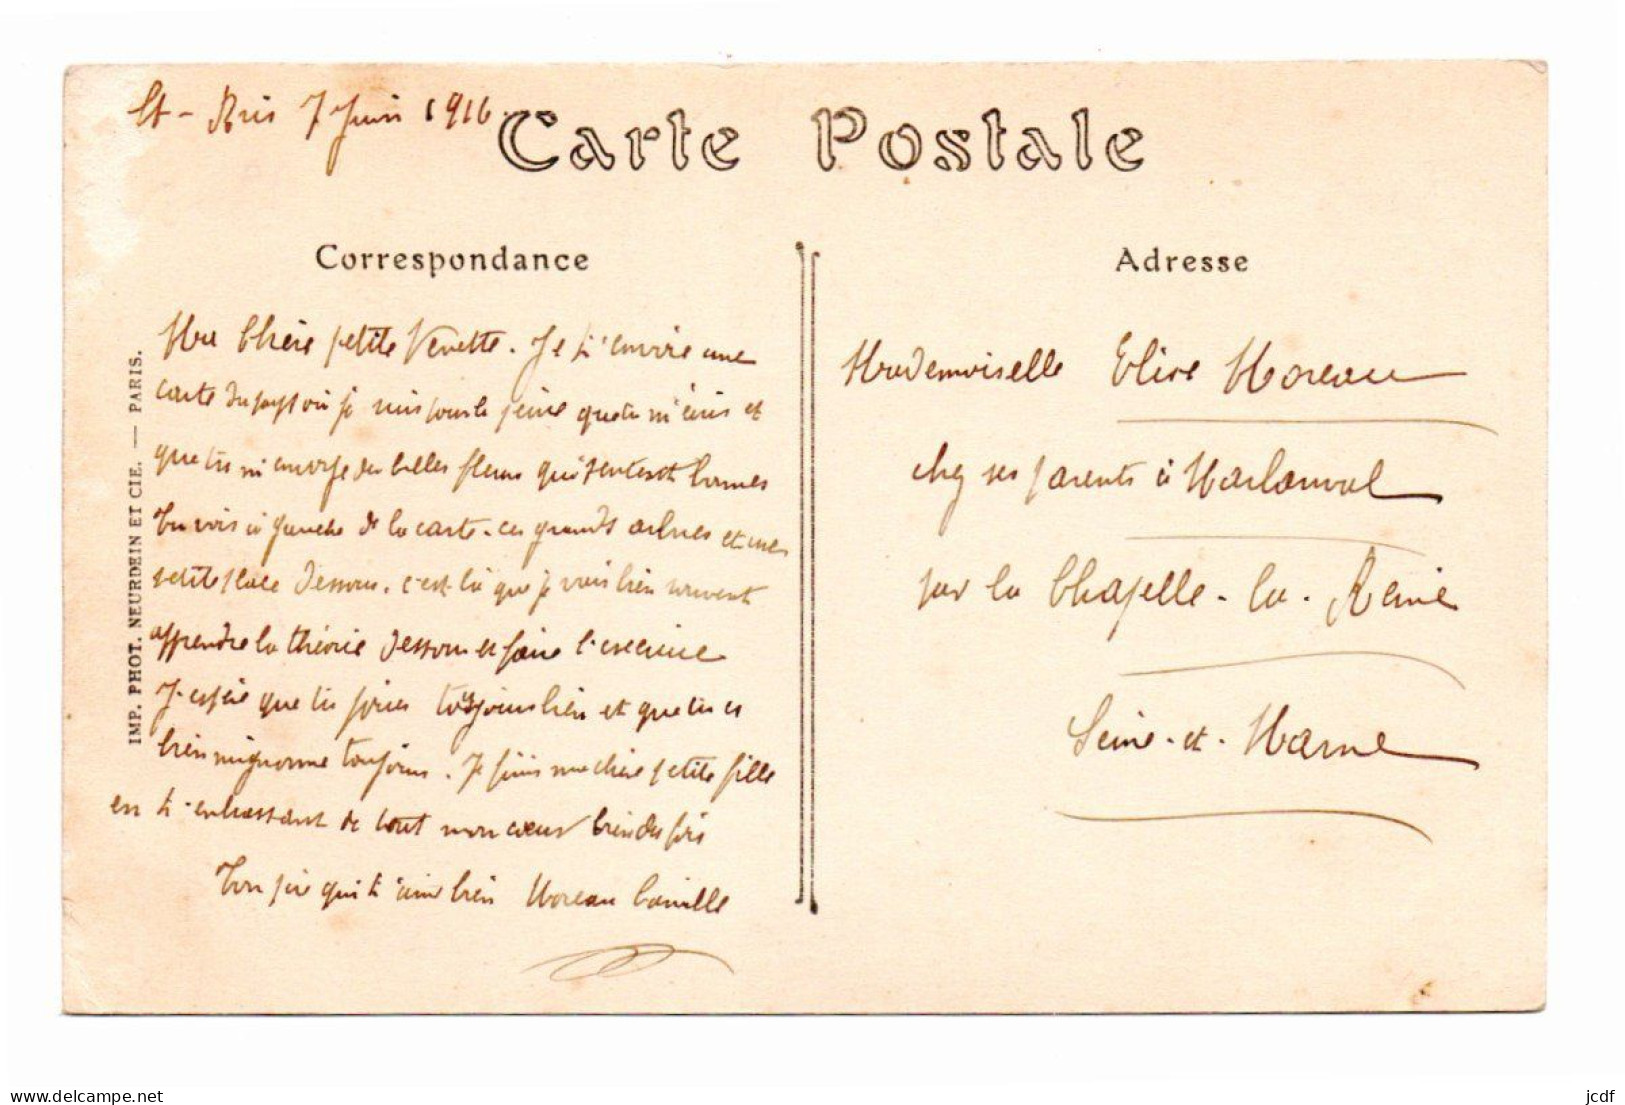 St - Bris 7 Juin 1916
Carte Postale
Correspondance
Ma Chère petite Venette. Je t'envoie une
carte du pays où je suis pour la peine que tu m'écris et
que tu m'envoye des belles fleurs qui sentest bonnes
Tu vois à gauche de la carte. ces grands arbres et une
petite place dessous. c'est là que je vais bien souvent
apprendre la théorie dessous et faire l'exercice
J'espère que tu joues toujours bien et que tu es
bien mignonne toujours. Je finis ma chère petite fille
en t'embrassant de tout mon cœur bien des fois
Ton père qui t'aime bien Moreau Camille
IMP. PHOT. NEURDEIN ET CIE. — PARIS.
Adresse
Mademoiselle Elise Moreau
chez ses parents à Marlanval
par la Chapelle-la-Reine
Seine-et-Marne
https://www.delcampe.net
jcdf